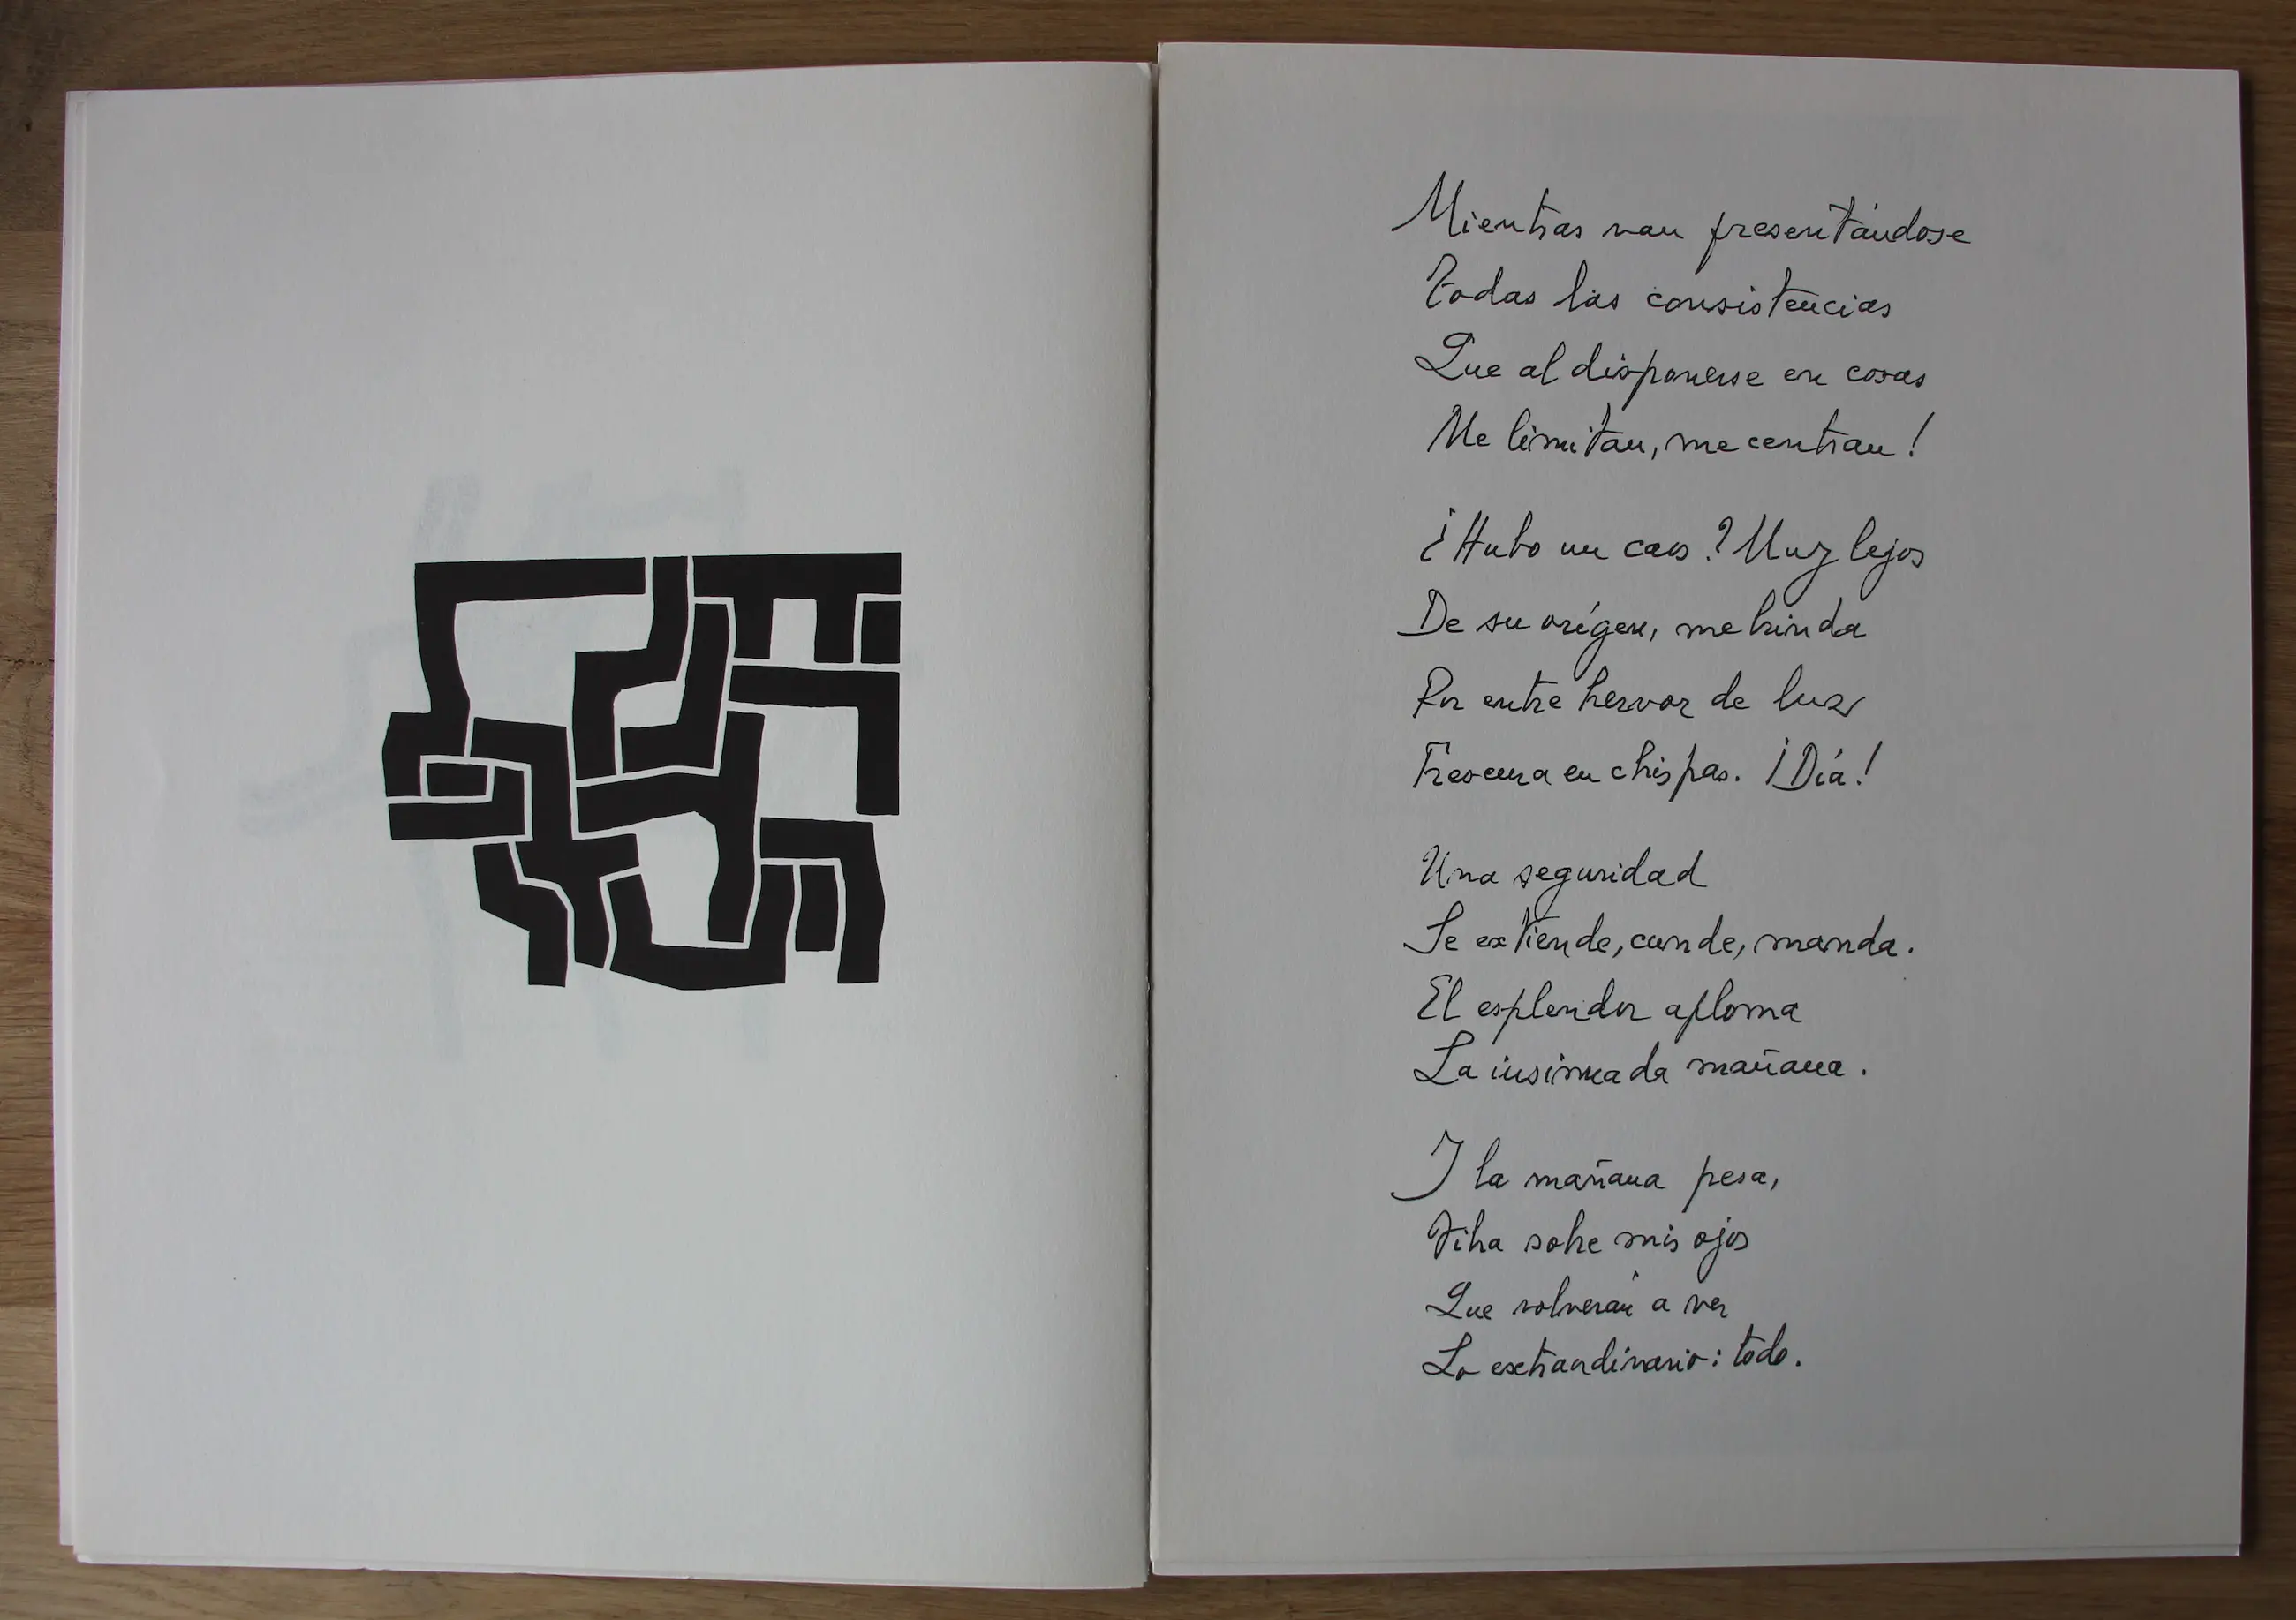 Mientras van presentándose
Todas las consistencias
Que al disponerse en cosas
Me limitan, me centran!
¿Hubo un caos? Muy lejos
De su orígen, me brinda
Por entre hervor de luz
Frescura en chispas. ¡Día!
Una seguridad
Se extiende, cunde, manda.
El esplendor aploma
La insinuada mañana.
Y la mañana pesa,
Vibra sobre mis ojos
Que volverán a ver
Lo extraordinario: todo.